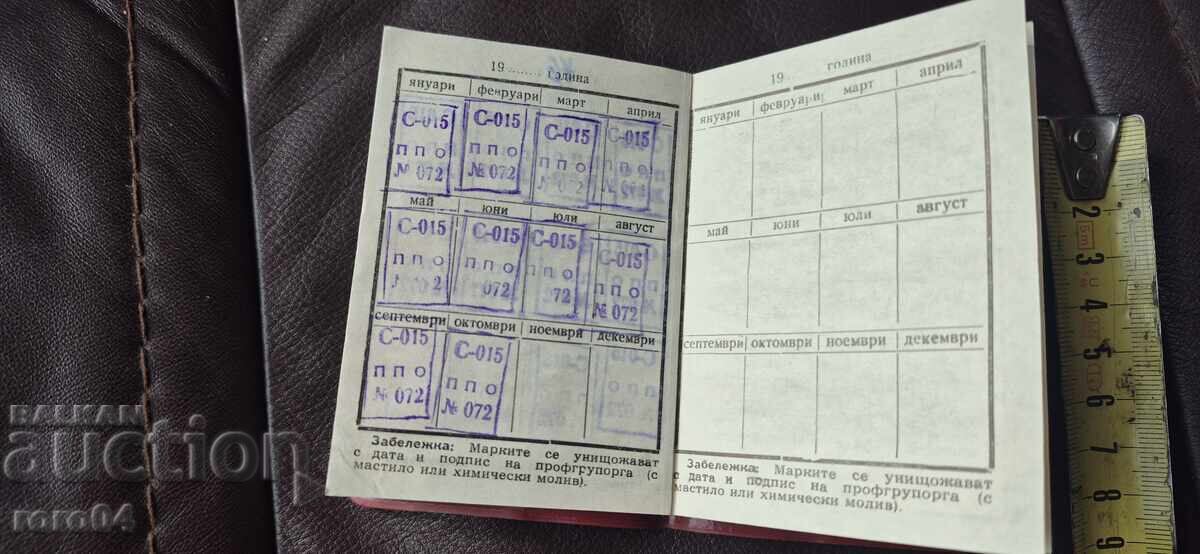 19........ година
януари февруари март април
С-015 С-015 С-015 С-015
ППО ППО ППО ППО
№ 072 № 072 № 072 № 072
май юни юли август
С-015 С-015 С-015 С-015
ППО ППО ППО ППО
2 072 72 № 072
септември октомври ноември декември
С-015 С-015
ППО ППО
№ 072 № 072
Забележка: Марките се унищожават
с дата и подпис на профгрупорга (с
мастило или химически молив).
19.... година
януари февруари март април
май юни юли август
септември октомври ноември декември
Забележка: Марките се унищожават
с дата и подпис на профгрупорга (с
мастило или химически молив).
2 3 4 5 6 7 8 9
5m
BALKAN
auction
roro04